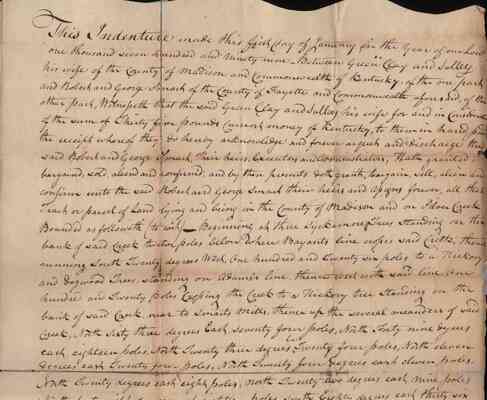 This Indenture made this first day of January in the Year of our Lord
one thousand seven hundred and Ninety nine Between Green Clay and Salley
his wife of the County of Madison and Commonwealth of Kentucky, of the one part
and Robert and George Smart of the County of Fayette and Commonwealth aforesaid, of the
other part, Witnesseth that the said Green Clay and Salley his wife for and in Consideration
of the sum of Thirty five pounds Current money of Kentucky, to them in hand paid
the receipt whereof they do hereby acknowledge and forever acquit and discharge the
said Robert and George Smart, their heirs, Executors and Administrators, Hath granted
bargained, sold, aliend and confirmed, and by these presents doth grant, bargain, Sell, alien and
confirm unto the said Robert and George Smart their heirs and assigns forever, all that
Tract or parcel of Land lying and being in the County of Madison and on Creek
Bounded as followeth (to wit) Beginning at three Sycamore Trees Standing on the
bank of said Creek thirteen poles below where line crosses said Creek, thence
running South Twenty degrees West One hundred and Twenty six poles to a Hickory
and Dogwood Trees, Standing on Adams's line, thence West with said line One
hundred and Twenty poles Crossing the Creek to a Hickory tree Standing on the
bank of said Creek, near to Smarts Mill, thence up the several meanders of said
Creek, North Sixty three degrees East Seventy four poles, North Forty nine degrees
east eighteen poles, North Twenty three degrees Twenty four poles, North eleven
degrees east Twenty four poles, North Twenty four degrees east eleven poles,
North Twenty degrees east eight poles, north Twenty two degrees east nine poles
poles South Eighty degrees east thirty six